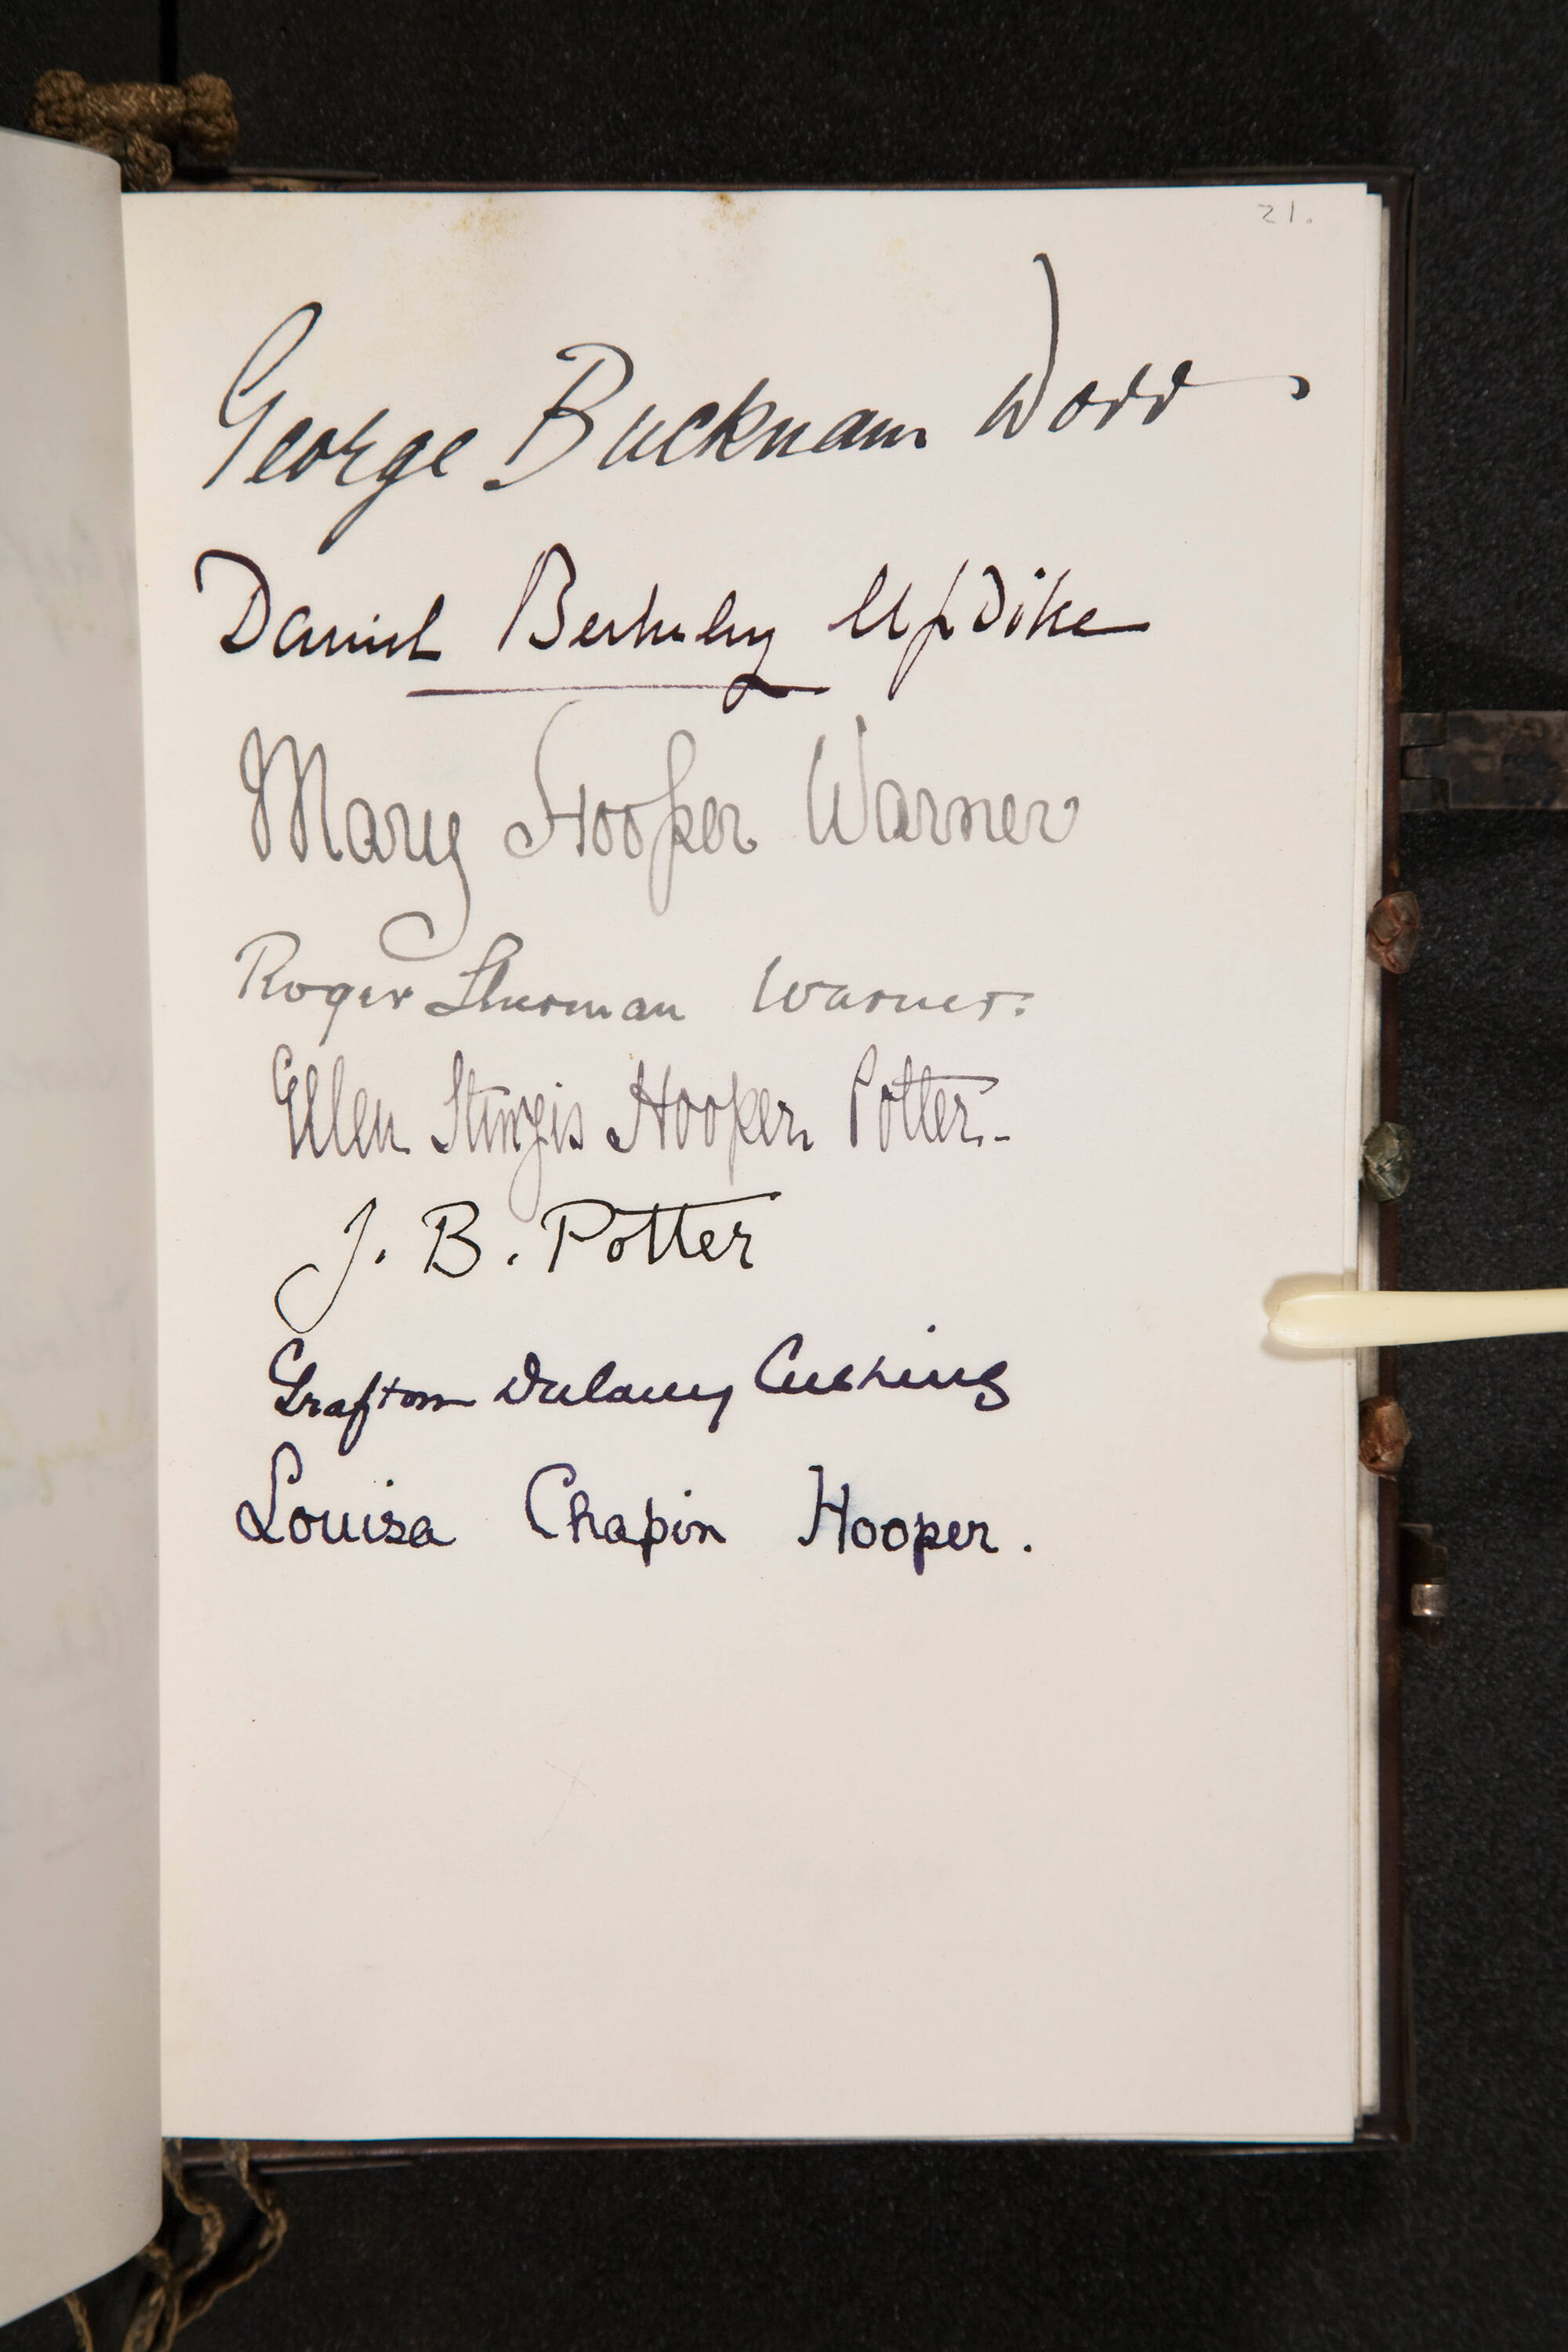 21.
George Bucknam Dorr
Daniel Berkeley Updike
Mary Hooper Warner
Roger Sherman Warner.
Ellen Sturgis Hooper Potter.-
J. B. Potter
Grafton Dulany Cushing
Louisa Chapin Hooper.